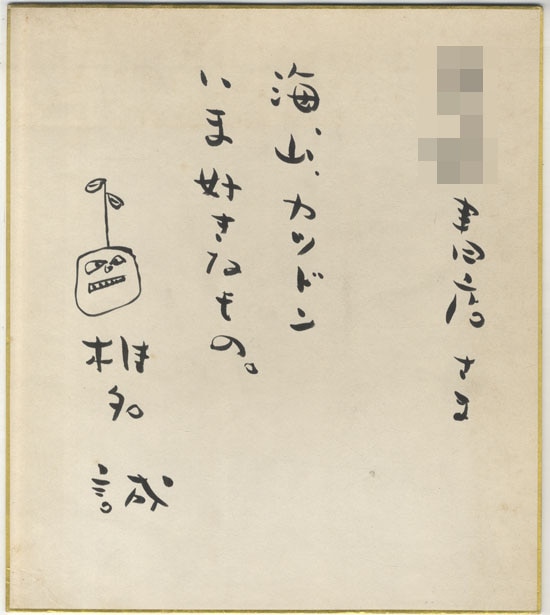 書店 さま
海、山、カツドン
いま好きなもの。
椎名 誠